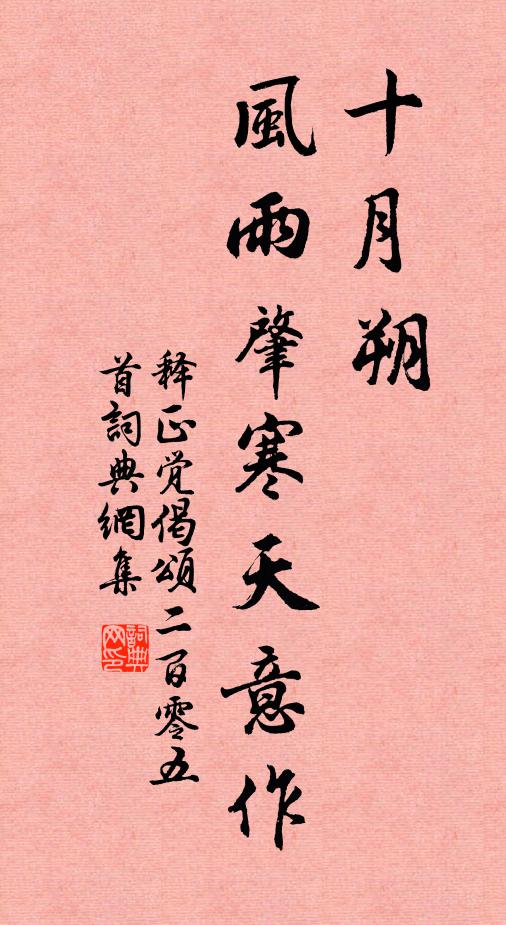 十月朔
風雨肇寒天意作
释正觉偈頌二百零五
首詞典網集
詞典
网印